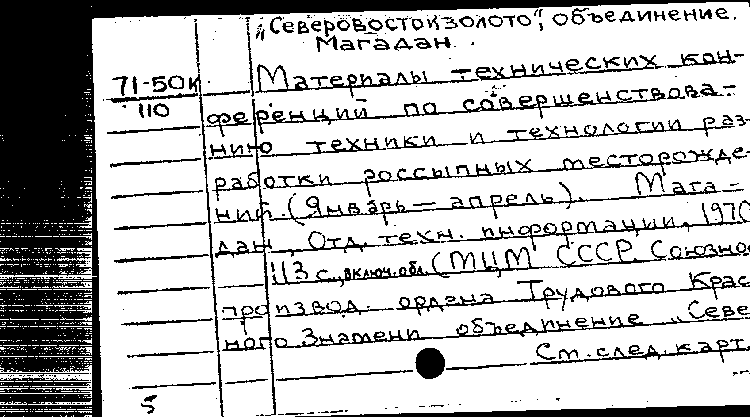 „Северовостокзолото", объединение.
Магадан.
71-50к Материалы технических кон-
110 ференций по совершенствова-
нию техники и технологии раз-
работки россыпных месторожде-
ний. (Январь — апрель). Мага-
дан, Отд. техн. информации, 1970
113 с., включ. обл. (МЦМ СССР. Союзно
производ. ордена Трудового Крас
ного Знамени объединение „Севе
См. след. карт.
5